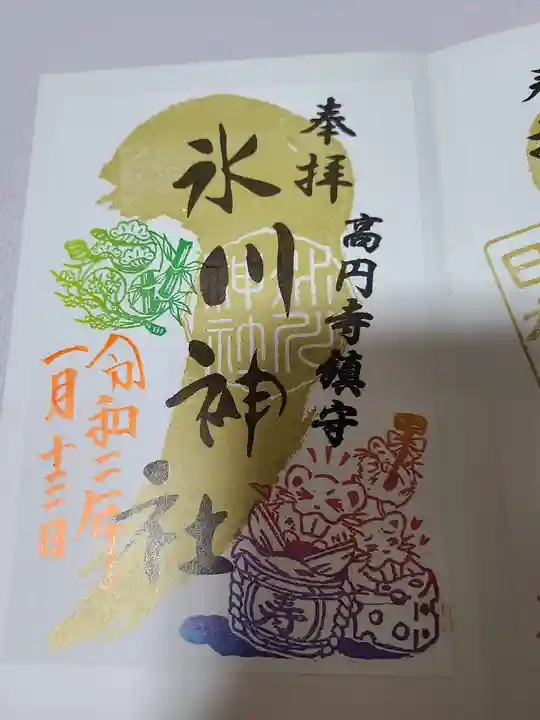 奉拝
高円寺鎮守
氷川神社
氷川
神社
令和二年
一月十二日
寿